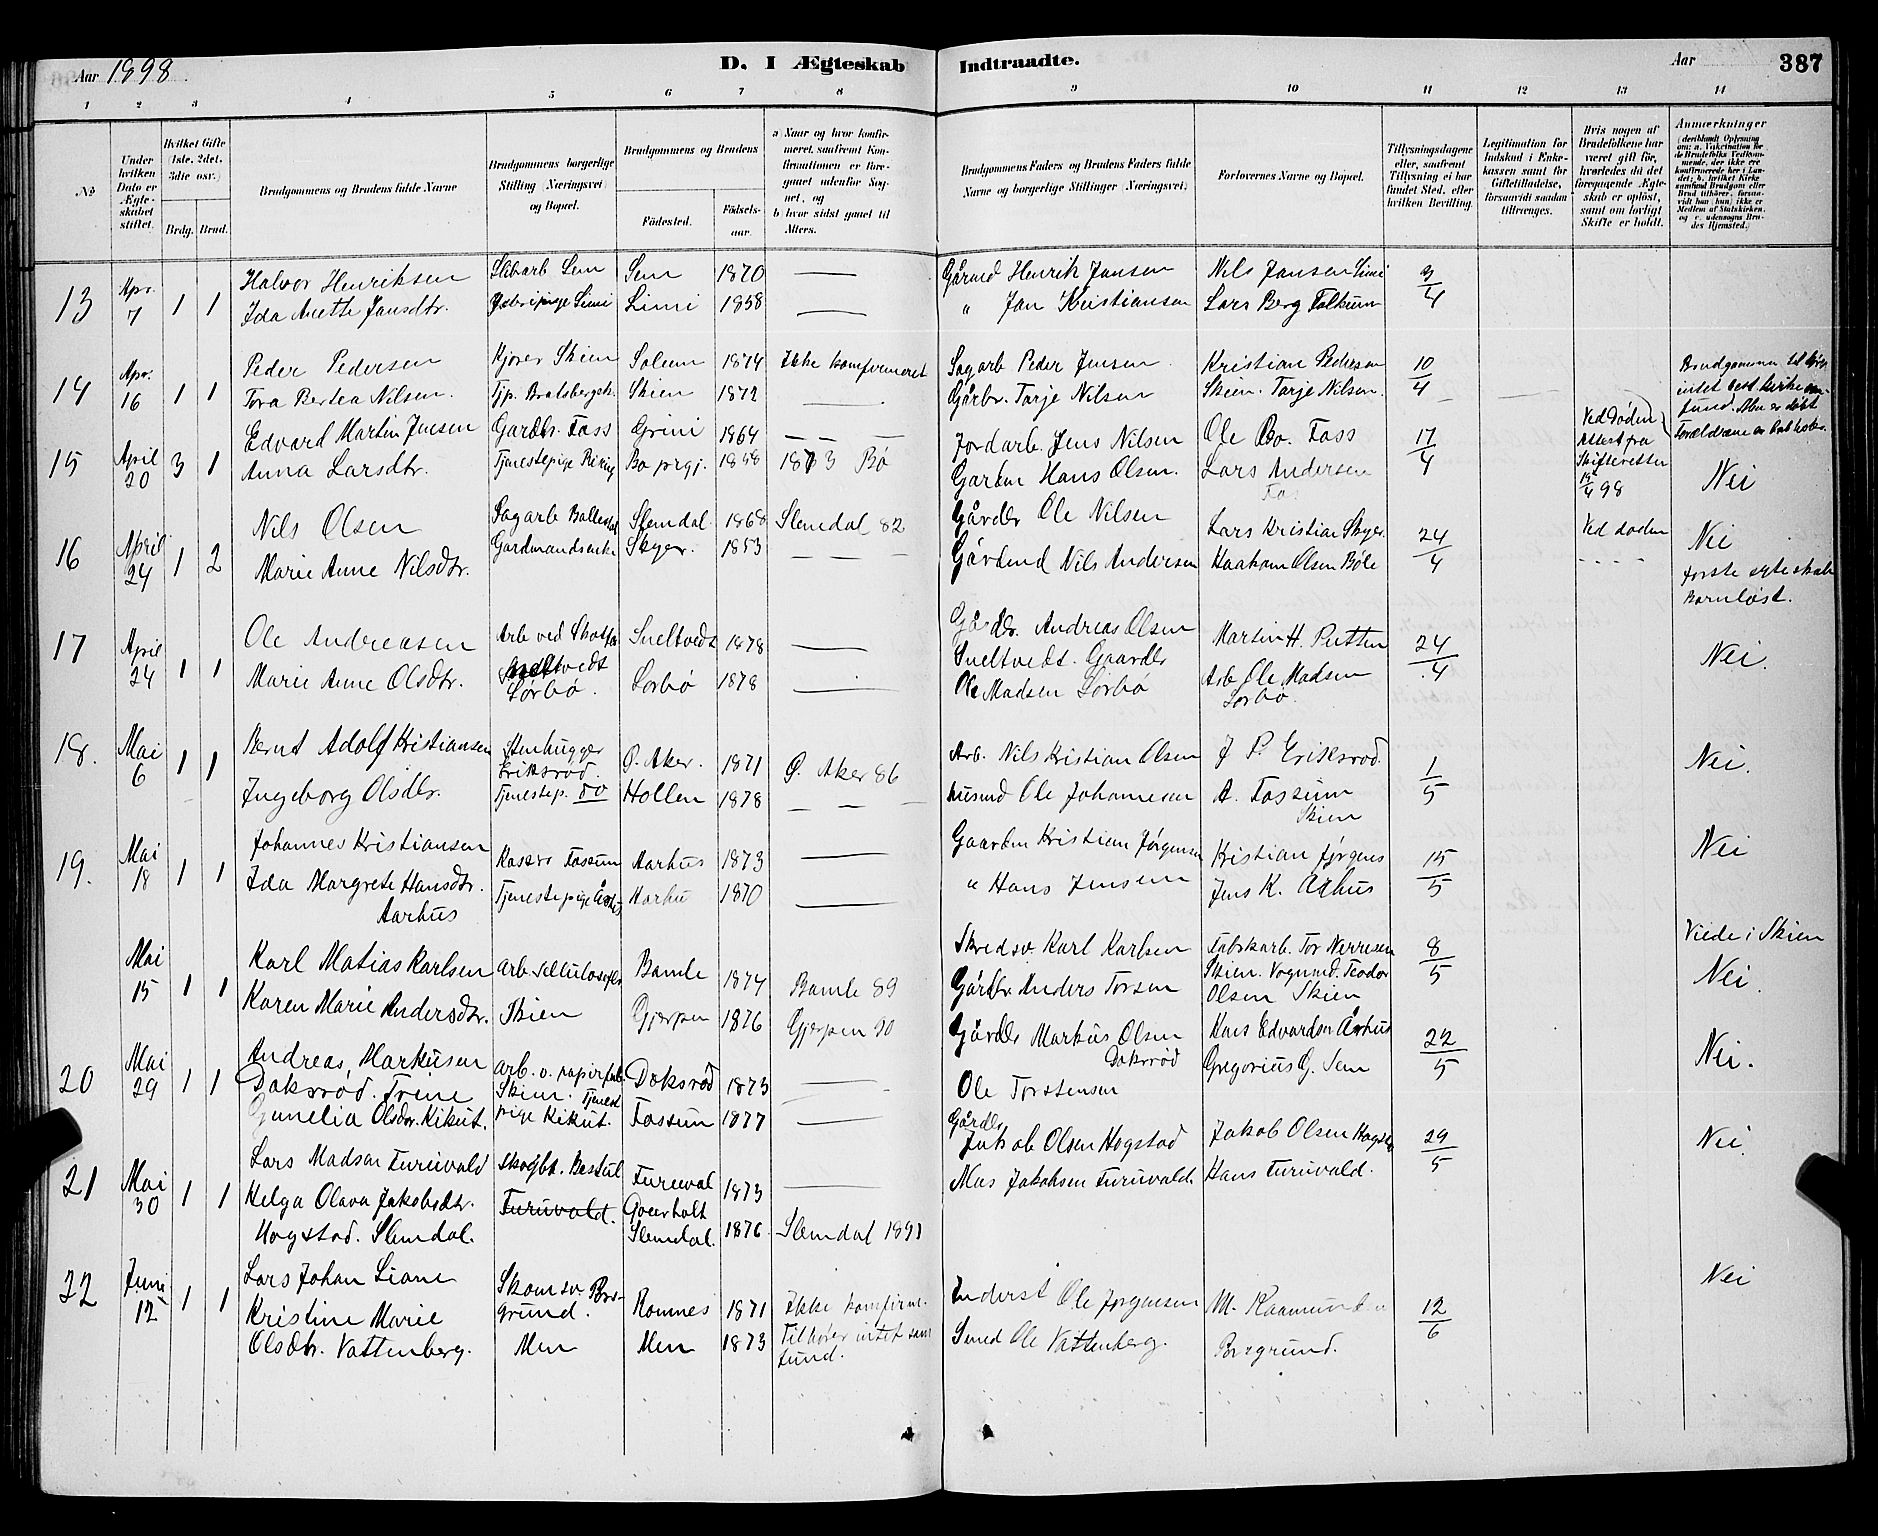 Aar 1898.
D. I Ægteskab Indtraadte.
Aar
387
1 2 3 4 5 6 7 8 9 10 11 12 13 14
No
Under hvilken Dato er Ægteskabet stiftet.
Hvilket Gifte (1ste, 2det, 3die osv.)
Brdg. Brud.
Brudgommens og Brudens fulde Navne
Brudgommens borgerlige Stilling (Næringsvei) og Bopæl.
Brudgommens og Brudens
Födested.
Födselsaar.
a) Naar og hvor konfirmeret, saafremt Konfirmationen er foregaaet udenfor Sognet, og
b) hvor sidst gaaet til Alters.
Brudgommens Faders og Brudens Faders fulde Navne og borgerlige Stillinger (Næringsvei)
Forlovernes Navne og Bopæl.
Tillysningsdagene eller, saafremt Tillysning ei har fundet Sted, efter hvilken Bevilling.
Legitimation for Indskud i Enkekassen samt for Giftetilladelse, forsaavidt saadan tiltrænges.
Hvis nogen af Brudefolkene har været gift för, hvorledes da det foregaaende Ægteskab er oplöst, samt om lovligt Skifte er holdt.
Anmærkninger
13 Apr. 7 1 1
Halvor Henriksen Sem Sem 1870 — Gårmd Henrik Jansen Nils Jansen Limi 3/4
Ida Anette Jansdtr. Limi Limi 1858 — " Jan Kristiansen Lars Berg Falkum
14 Apr. 16 1 1
Peder Pedersen Kjører Skien Solum 1874 Ikke komfirmeret Sagarb Peder Jensen Kristian Pedersen 10/4
Tora Bertea Nilsen. Tjp. Bratsbergsk. Skien 1872 — Gårbr. Tarje Nilsen Skien. Tarje Nilsen.
Brudgommen tilhører intet best kirkesamfund. Men er døbt
15 April 20 3 1
Edvard Martin Jensen Gardbr. Foss Grini 1864 — Jordarb. Jens Nilsen Ole Bo. Foss 17/4 Ved Døden Attest fra Skifteretten 15/4 98
Anna Larsdtr. Tjenestepige Bø prgj. 1858 1873 Bø Hans Olsen. Lars Andersen Nei
16 April 24 1 2
Nils Olsen Sagarb Slemdal. 1868 Slemdal 82 Gårdbr Ole Nilsen Lars Kristian Skyer. 24/4 Ved døden Nei
Marie Anne Nilsdtr. Gardmandsenke Skyer. 1853 — Gårdmd Nils Andersen Haakon Olsen Bøle første egteskab Barnløst.
17 April 24 1 1
Ole Andreasen Arb ved Sneltvedt 1878 — Gårdbr. Andreas Olsen Martin H. Putten 24/4 Nei.
Snelttvedt Snelttvedt. Gaardbr
Marie Anne Olsdtr. Sørbø. Sørbø 1878 — Ole Madsen Sørbø Arb Ole Madsen Sørbø
18. Mai 6 1 1
Bernt Adolf Kristiansen Stenhugger Eriksrød. Ø. Aker. 1871 Ø. Aker 86 Arb. Nils Kristian Olsen J P. Eriksrød 1/5 Nei.
Ingeborg Olsdtr. Tjenestep. do Hollen 1878 — Husmd Ole Johannesen A. Fossum Skien
19. Mai 18 1 1
Johannes Kristiansen Fossum Aarhus 1873 — Kristian Jørgensen Kristian Jørgens 15/5 Nei
Ida Margrete Hansdtr. Aarhus Tjenestepige Århus Aarhu 1870 — " Hans Jensen Jens K. Aarhus
Mai 15 1 1
Karl Matias Karlsen Arb. Bamle 1874 Bamle 89 Karl Karlsen 8/5 Viede i Skien
Karen Marie Andersdtr. Skien Gjerpen 1876 Gjerpen 90 Gårdbr Anders Torsen Skien. Vognmd. Teodor Olsen Skien Nei.
20 Mai 29 1 1
Andreas Markusen Doksrød. Arb. v. papirfab. Skien. Doksrød 1873 — Gårdbr Markus Olsen Doksrød Hans Edvardsen Århus 22/5 Nei.
Trine Gunelia Olsdtr. Kikut. Tjenestpige Kikut. Fossum 1877 — Ole Torstensen Gregorius G. Sem
21 Mai 30 1 1
Lars Madsen Furuvald Skogbt. Bestul Furuval 1873 — Gårdbr Jakob Olsen Hogstad Jakob Olsen 29/5 Nei.
Helga Olava Jakobsdtr. Furuvald. Slemdal. 1876 Slemdal 1891 Mas Jakobsen Furuvald. Hans Furuvald.
Hogstad. Slemdal.
22 Juni 12 1 1
Lars Johan Liane Skomsv. Borgrund. Romnes 1871 Ikke komfirme. Inderst Ole Jørgensen 12/6 Nei
Kristine Marie Olsdtr. Vattenberg. Men Men 1873 Tilhører intet samfund. Smed Ole Vattenberg. Borgrund.